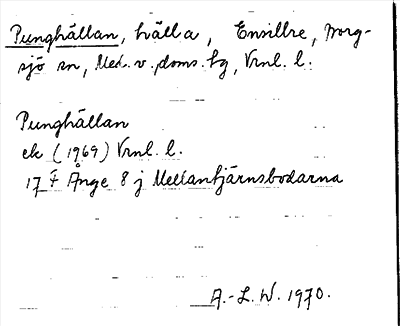 Punghällan, hälla, Ensillre, Borg-
sjö sn, Med. v. doms. hg, Vrnl. l.
Punghällan
ek (1969) Vrnl. l.
17 F Ånge 8 j Mellantjärnsbodarna
A.-L.W. 1970.